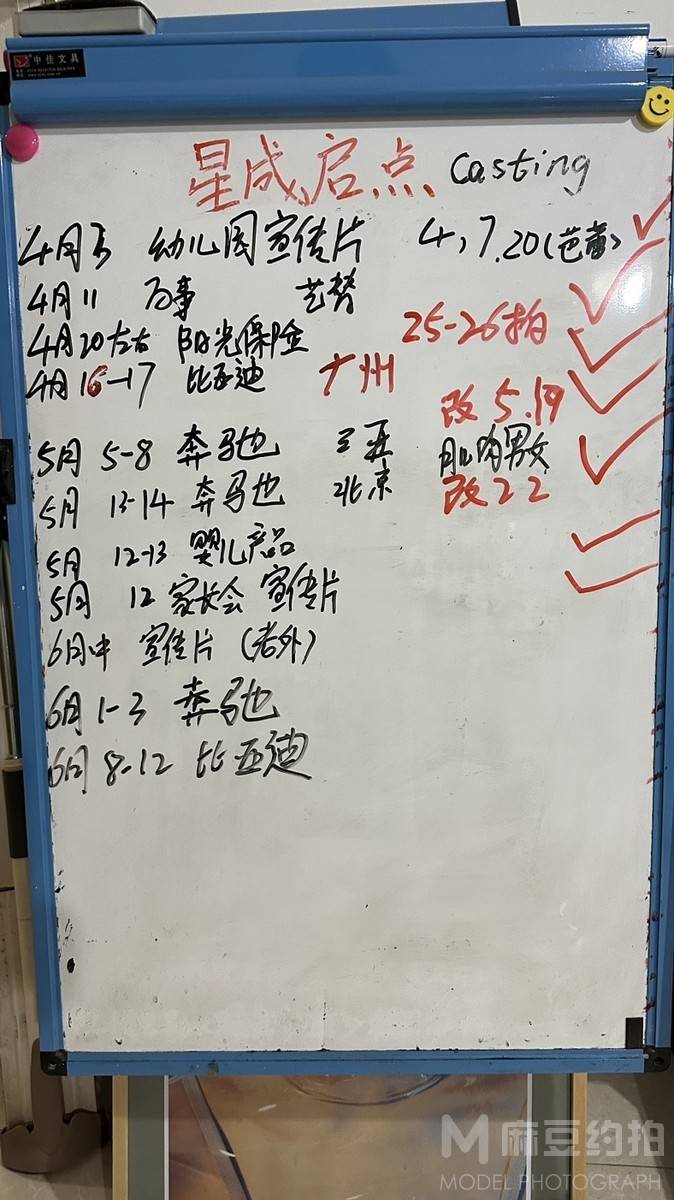 中佳文具
星成启点 Casting
4月 幼儿园宣传片 4,7.20(芭蕾)
4月11 百事 艺赞
4月20左右 阳光保险 25-26拍
4月16-17 比亚迪 广州
改5.19
5月 5-8 奔驰 三亚 肌肉男女
5月 13-14 奔驰 北京 改22
5月 12-13 婴儿产品
5月 12 家长会 宣传片
6月中 宣传片(老外)
6月 1-3 奔驰
6月 8-12 比亚迪
M 麻豆约拍
MODEL PHOTOGRAPH